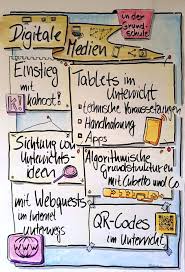 Digitale
Medien
in der
Grund-
schule
Einstieg
mit
kahoot!
K!
Tablets im
Unterricht
• technische Voraussetzungen
• Handhabung
• Apps
Sichtung von
Unterrichts-
ideen
Algorithmische
Grundstrukturen
mit Cubetto und Co.
mit Webquests
im Internet
unterwegs
QR-Codes
im Unterricht